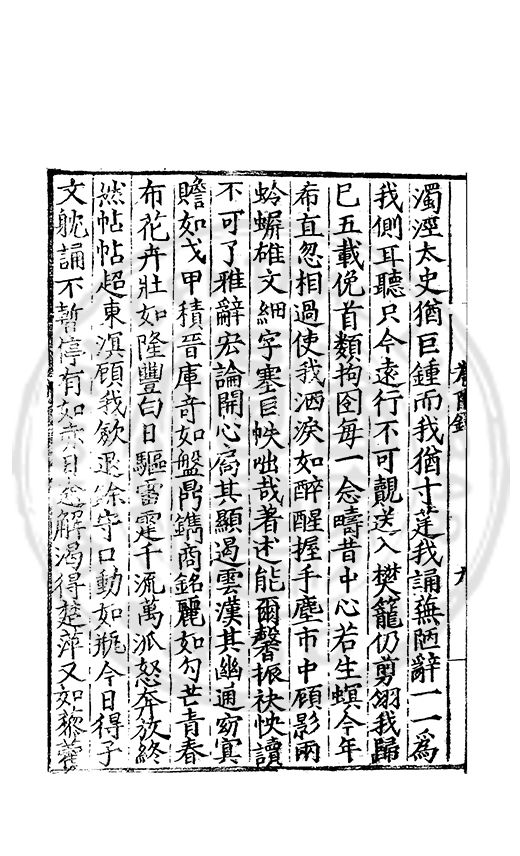 濁涇太史猶巨鍾而我猶寸莛我誦蕪陋辭一一為
我側耳聽只今遠行不可覿送入樊籠仍剪翎我歸
已五載俛首類拘囹每一念疇昔中心若生螟今年
希直忽相過使我洒淚如醉醒握手塵市中顧影兩
蛉蠏雄文細字塞巨帙咄哉著述能爾馨振袂怏讀
不可了雅辭宏論開心扃其顯遏雲漢其幽通窈冥
贍如戈甲積晉庫竒如盤鼎鐫商銘麗如勾芒青春
布花卉壯如隆豐白日驅雷霆千流萬派怒奔放終
然帖帖超東溟顧我歛退餘守口動如瓶今日得子
文躭誦不暫停有如赤日解渴得楚萍又如藜藿
九